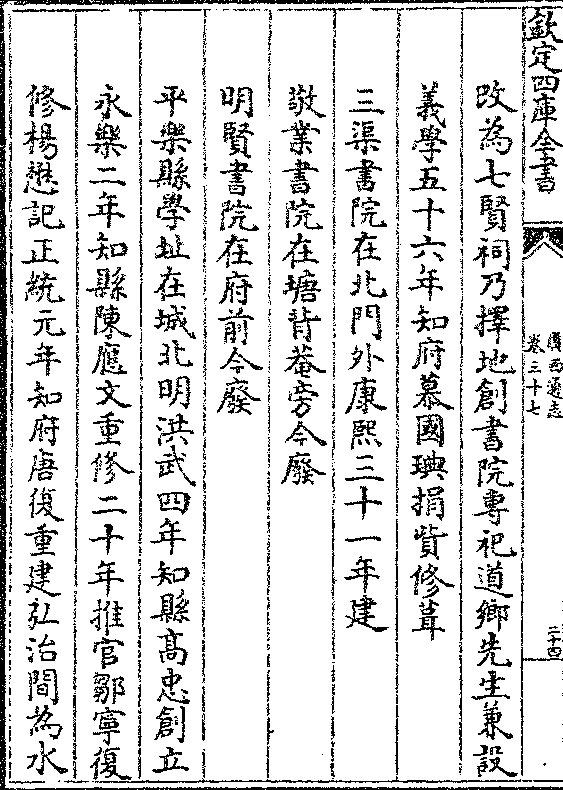 欽定四庫全書
廣西通志
卷三十七
二十四
改為七賢祠乃擇地創書院專祀道鄉先生兼設
義學五十六年知府慕國琠捐貲修葺
三渠書院在北門外康熙三十一年建
敬業書院在塘背菴旁今廢
明賢書院在府前今廢
平樂縣學址在城北明洪武四年知縣高忠創立
永樂二年知縣陳應文重修二十年推官鄒寧復
修楊懋記正統元年知府唐復重建弘治間為水